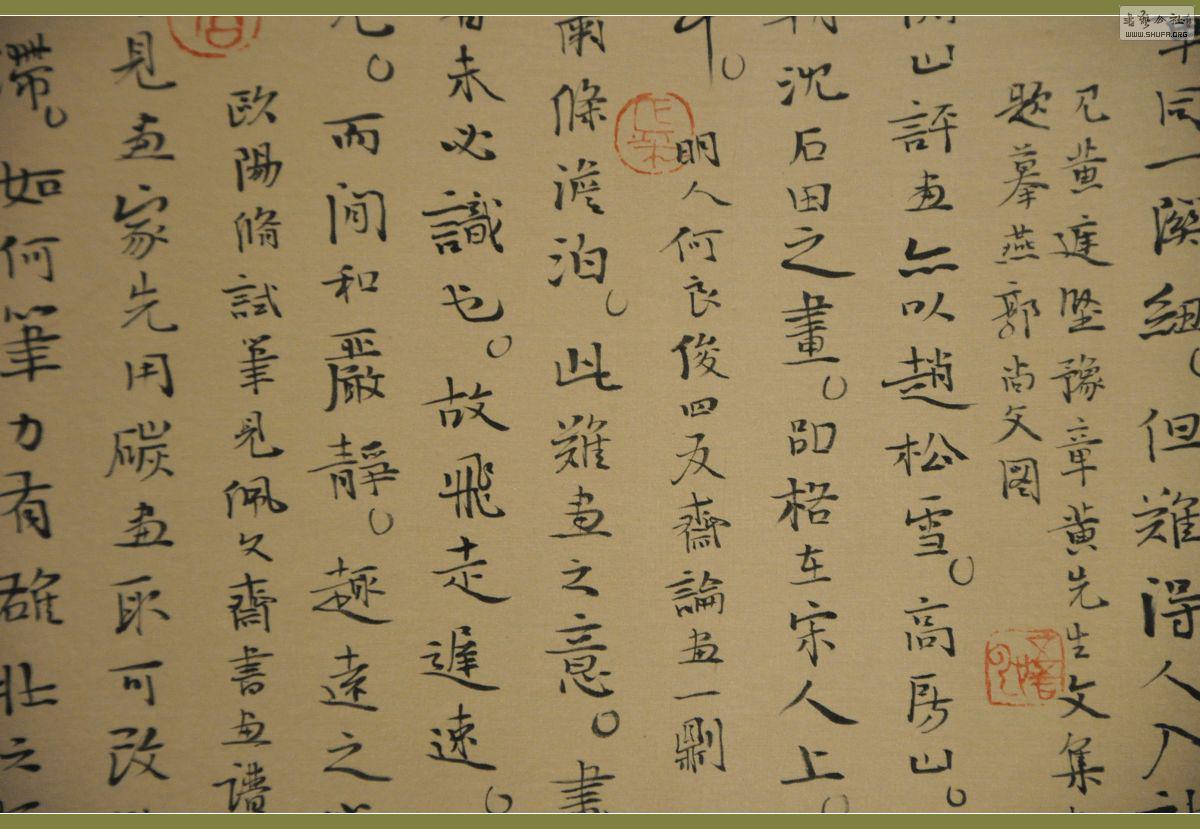 同一關紐。但難得人入
見黃庭堅豫章黃先生文集
題摹燕郭尚父圖
山評畫亦以趙松雪。高房山。
沈石田之畫。即格在宋人上。
明人何良俊四友齋論畫一則
蕭條澹泊。此難畫之意。畫
者未必識也。故飛走遲速。
而閒和嚴靜。趣遠之
歐陽脩試筆見佩文齋書畫譜
見畫家先用碳畫取可改
滯。如何筆力有雄壯之
WWW.SHUFA.ORG